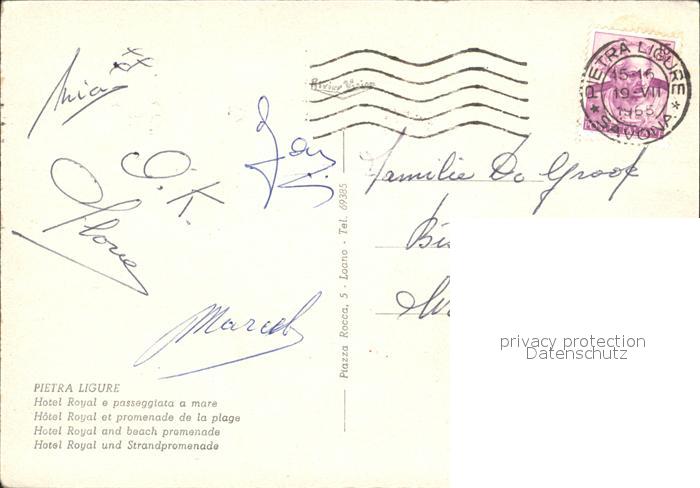 PIETRA LIGURE
15-16
19-VII
1965
SAVONA
Riviera Vision
Mia xx
O.K.
Marcel
Familie De Groof
Piazza Rocca, 5 - Loano - Tel. 69385
privacy protection
Datenschutz
PIETRA LIGURE
Hotel Royal e passeggiata a mare
Hôtel Royal et promenade de la plage
Hotel Royal and beach promenade
Hotel Royal und Strandpromenade